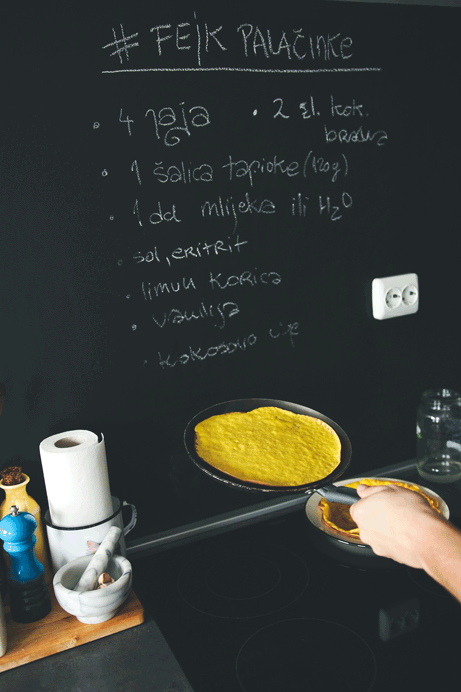 # FEJK PALAČINKE
• 4 jaja
• 2 žl. kok. brašna
• 1 šalica tapioke (120g)
• 1 dcl mlijeka ili H2O
• sol, eritrit
• limun korica
• vanilija
• kokosovo ulje